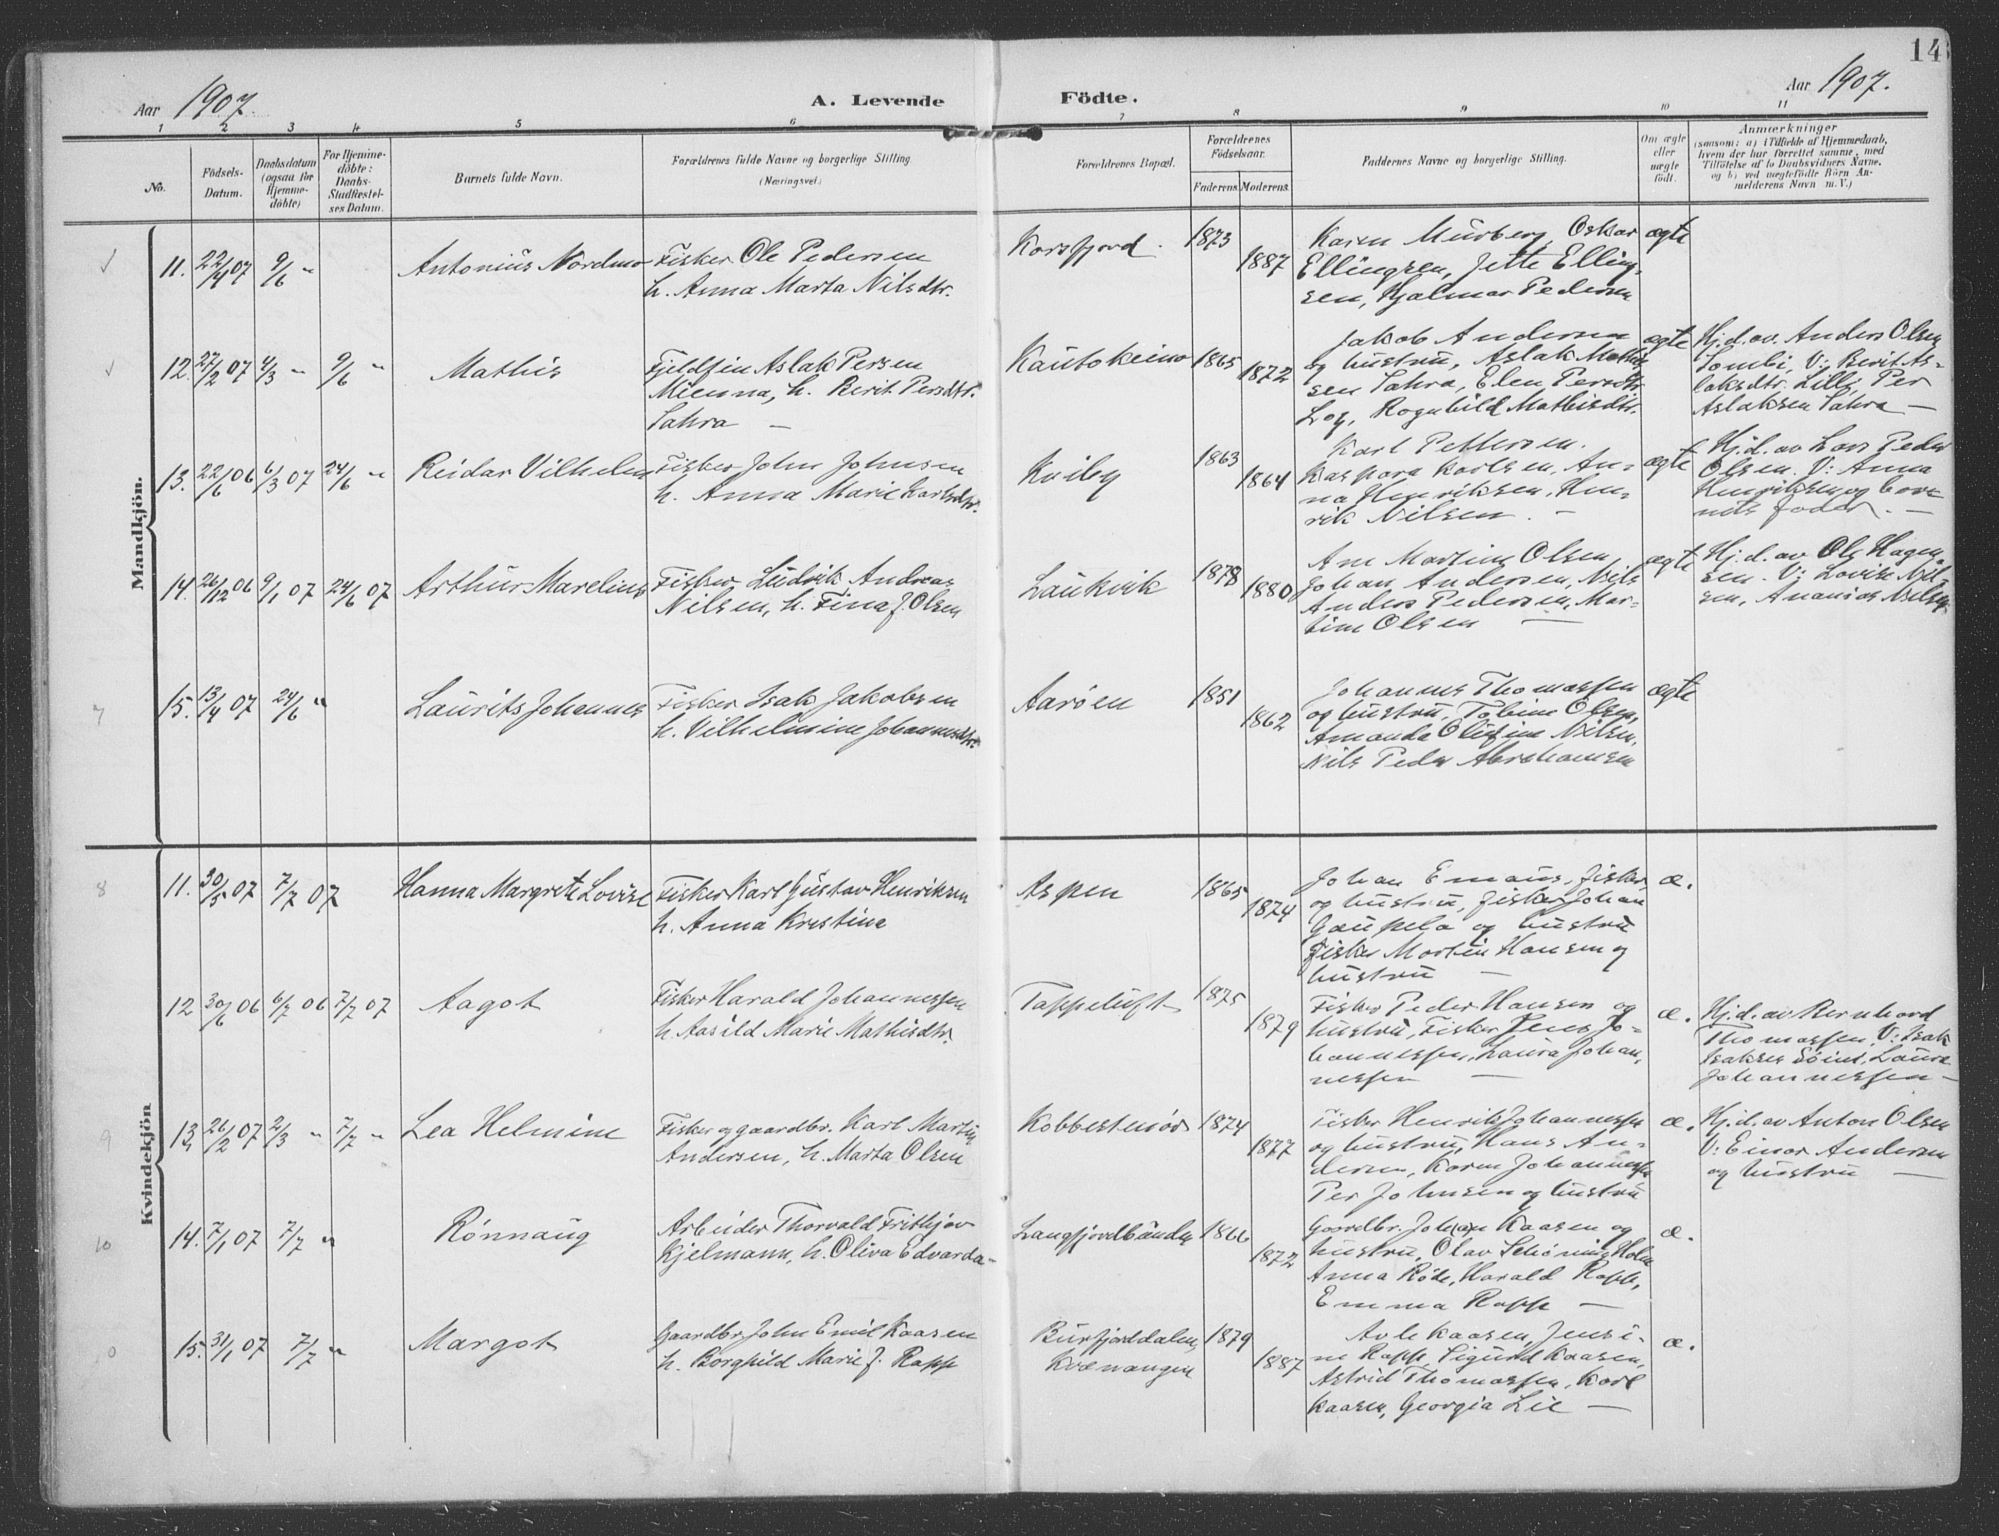 14
Aar 1907. A. Levende Födte. Aar 1907.
1 2 3 4 5 6 7 8 9 10 11
No.
Födsels-
Datum.
Daabsdatum
(ogsaa for
Hjemme-
döbte)
For Hjemme-
döbte:
Daabs-
Stadfæstel-
ses Datum.
Barnets fulde Navn.
Forældrenes fulde Navne og borgerlige Stilling
(Næringsvei.)
Forældrenes Bopæl.
Forældrenes
Födselsaar.
Faderens Moderens.
Faddernes Navne og borgerlige Stilling.
Om ægte
eller
uægte
födt.
Anmærkninger
(saasom: a) i Tilfælde af Hjemmedaab,
hvem der har forrettet samme, med
Tilföielse af to Daabsvidners Navne,
og b) ved uægtefödte Börn An-
melderens Navn m. V.)
Mandkjön.
11. 22/4 07 9/6 "
Antonius Nordmo
Fisker Ole Pedersen
h. Anna Marta Nilsdtr.
Korsfjord.
1873
1887
Karen Murberg, Oskar
Ellingsen, Jette Elling-
sen, Hjalmar Pedersen
ægte
12. 27/2 07 4/3 " 9/6 "
Mathis
Fjeldfin Aslak Persen
Mienna, h. Berit Persdtr.
Sahra —
Kautokeino
1865
1872
Jakob Andersen
og hustru, Aslak Mathis
sen Sahra, Elen Persdtr.
Log, Ragnhild Mathisdtr.
ægte
Hj.d. av Anders Olsen
Sombi, V: Berit As-
laksdtr. Lilli, Per
Aslaksen Sahra —
13. 22/6 06 6/3 07 24/6 "
Reidar Vilhelm
Fisker John Johnsen
h. Anna Marie Karlsdtr.
Kviby
1863
1864
Karl Pettersen.
Kaspara Karlsen, An-
na Henriksen, Hen-
rik Nilsen. —
ægte
Hj.d. av Lars Peder
Olsen. V: Anna
Henriksen og bar-
nets fader. —
14. 26/12 06 9/1 07 24/6 07
Arthur Marelius
Fisker Ludvik Andreas
Nilsen, h. Fina J. Olsen
Laukvik
1878
1880
Ane Martine Olsen,
Johan Andersen, Nils
Anders Pedersen, Mar-
tine Olsen —
ægte
Hj.d. av Ole Hagen-
sen. V: Lovise Nil-
sen, Ananias Nilsen
7
15. 13/4 07 24/6 "
Laurits Johannes
Fisker Isak Jakobsen
h. Vilhelmine Johannesdtr.
Aarøen
1851
1862
Johannes Thomassen
og hustru, Tobine Olsen,
Amanda Olufine Nilsen,
Nils Peder Abrahamsen
ægte
Kvindekjön
8
11. 30/5 07 7/7 07
Hanna Margrete Lovise
Fisker Karl Gustav Henriksen
h. Anna Kristine
Aspen
1865
1874
Johan Emaus, fisker,
og hustru, fisker Johan
Gaupela og hustru
Fisker Martin Hansen og
hustru —
æ.
12 30/6 06 6/7 06 7/7 07
Aagot
Fisker Harald Johannessen
h. Aasild Marie Mathisdtr.
Tappeluft
1875
1879
Fisker Peder Hansen og
hustru, Fisker Jens Jo-
hannessen, Laura Johan-
nessen —
æ.
Hj.d. av Bernhard
Thomassen, V: Isak
Isaksen Søint, Laura
Johannessen —
9
13. 26/2 07 2/3 " 7/7 "
Lea Helmine
Fisker og gaardbr. Karl Martin
Andersen, h. Marta Olsen
Kobbestenør
1874
1877
Fisker Henrik Johannessen
og hustru, Hans An-
dersen, Karen Johannessen
Per Johnsen og hustru
æ.
Hj.d. av Anton Olsen
V: Einar Andersen
og hustru —
10
14. 7/1 07 7/7 "
Rønnaug
Arbeider Thorvald Frithjov
Kjelmann, h. Oliva Edvarda
Langfjordbunden
1866
1872
Gaardbr. Johan Kaasen og
hustru, Olav Schøning Holm
Anna Røde, Harald Rapp,
Emma Rapp —
æ.
15. 31/1 07 7/7 "
Margot
Gaardbr. John Emil Kaasen
h. Borghild Marie f. Rapp
Burfjorddalen,
Kvænangen
1879
1887
Avle Kaasen, Jensi-
ne Rapp, Sigurd Kaasen,
Astrid Thomassen, Karl
Kaasen, Georgia Lie —
æ.